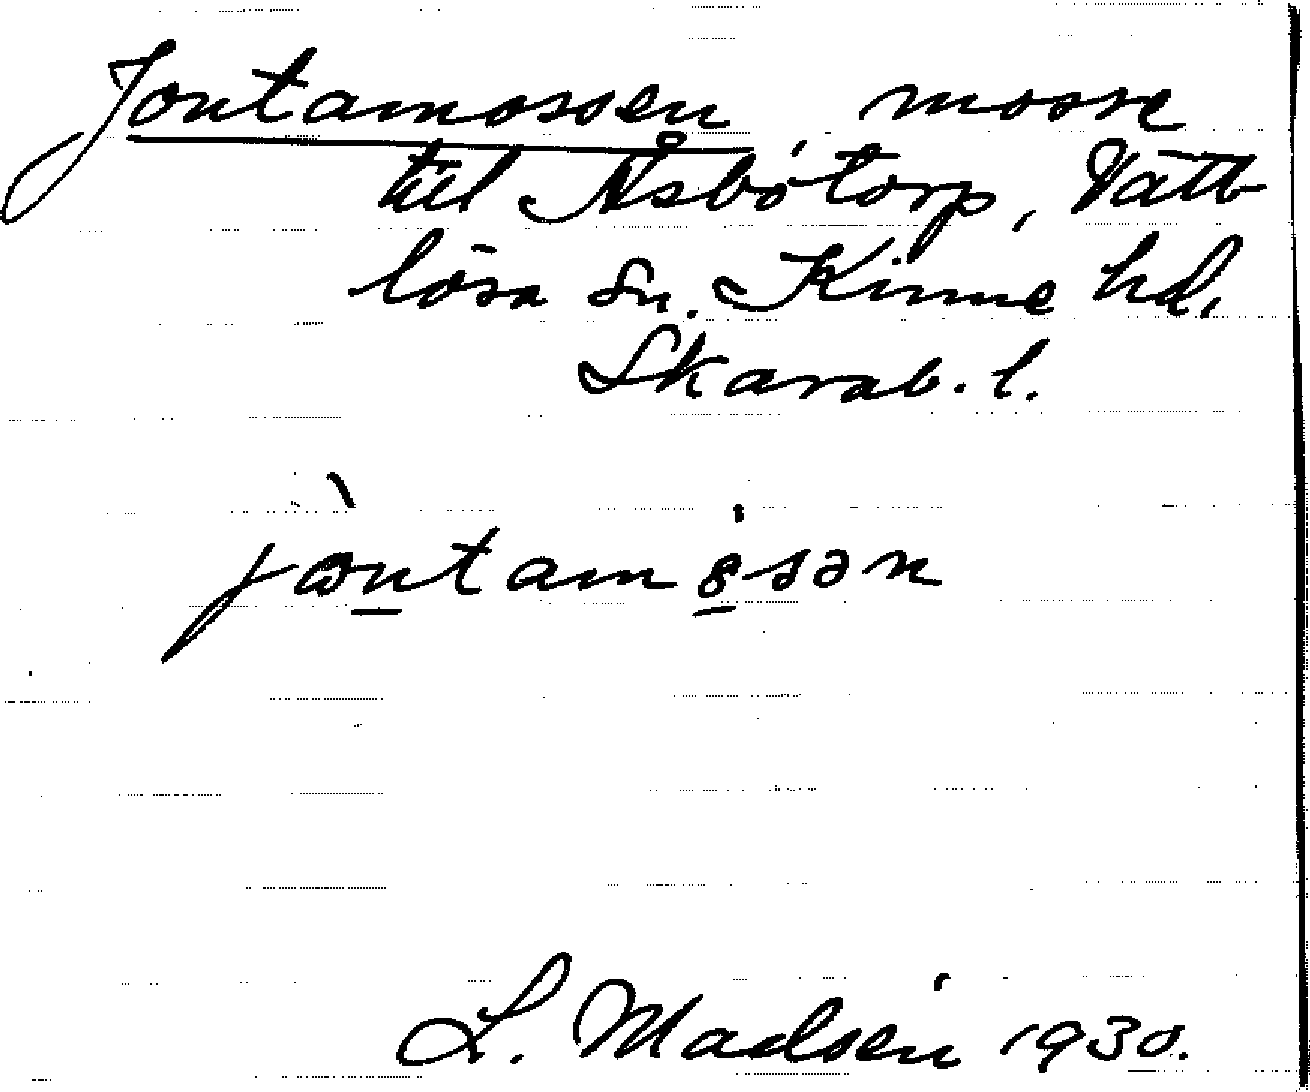 Jontamossen mosse
till Åsbotorp, Vätt-
lösa sn. Kinne hd,
Skarab. l.
L. Madsén 1930.